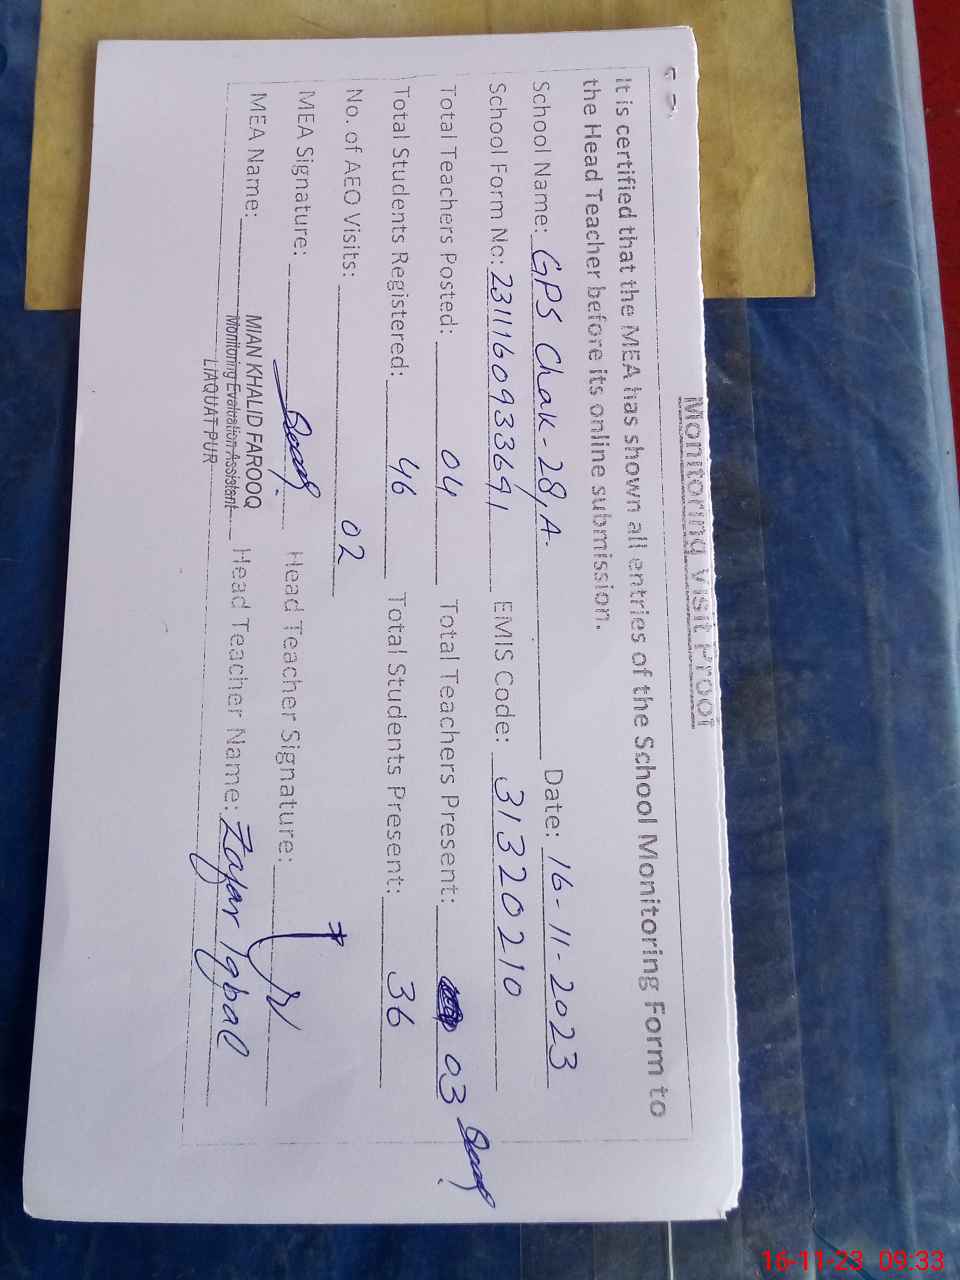 Monitoring Visit Proof
It is certified that the MEA has shown all entries of the School Monitoring Form to
the Head Teacher before its online submission.
School Name: GPS Chak-28/A. Date: 16-11-2023
School Form No: 2311160933691 EMIS Code: 31320210
Total Teachers Posted: 04 Total Teachers Present: 03
Total Students Registered: 46 Total Students Present: 36
No. of AEO Visits: 02
MEA Signature: Head Teacher Signature:
MEA Name: MIAN KHALID FAROOQ Head Teacher Name: Zafar Iqbal
Monitoring Evaluation Assistent
LIAQUAT PUR
16-11-23 09:33